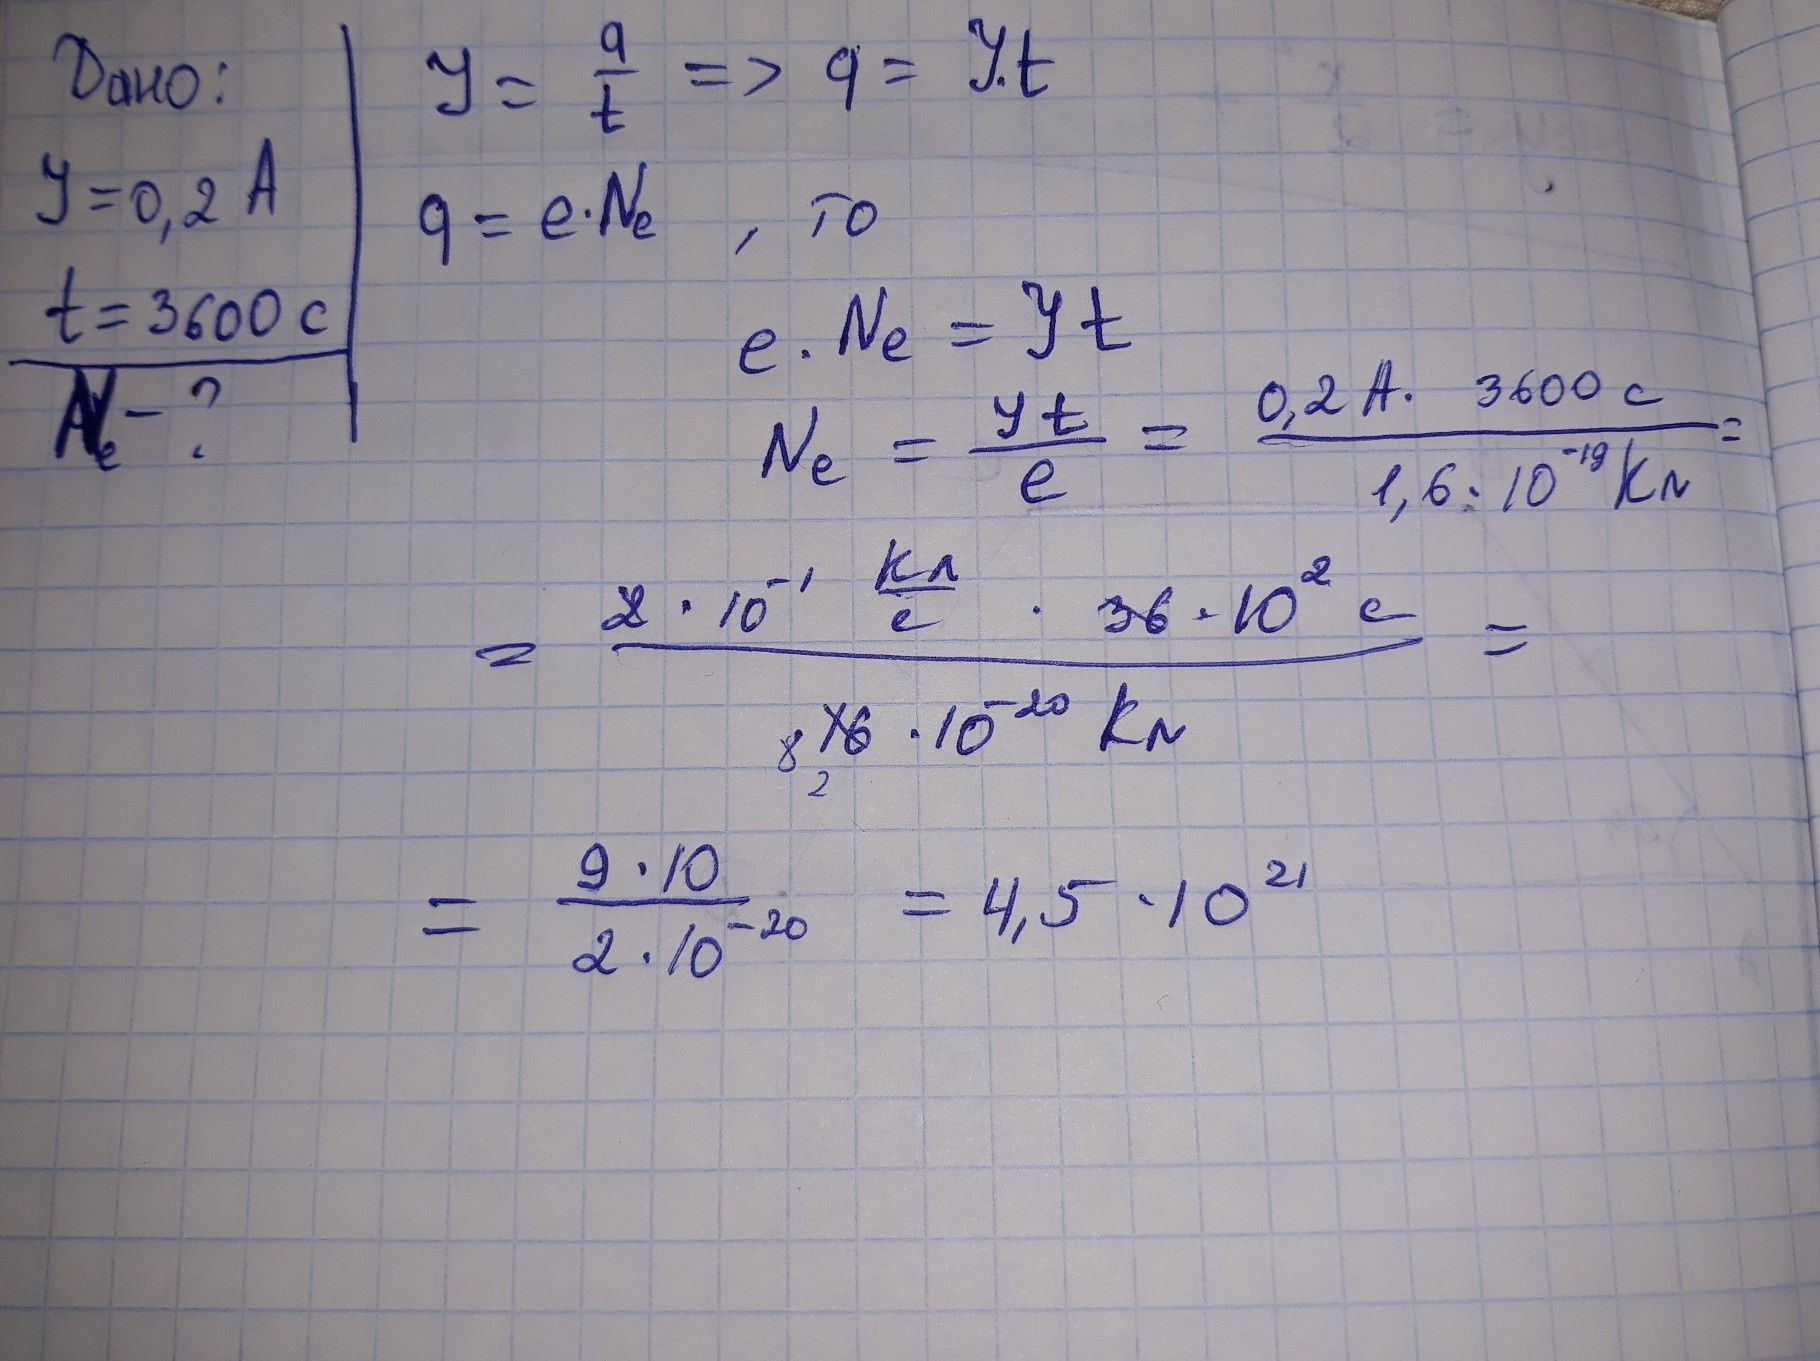 Дано:
У = 0,2 А
t = 3600 с
Ne - ?
У = q/t => q = У·t
q = e·Ne , то
e·Ne = Уt
Ne = Уt/e = 0,2 А · 3600 с / 1,6·10⁻¹⁹ Кл =
= 2·10⁻¹ Кл/с · 36·10² с / 16·10⁻²⁰ Кл =
8
2
= 9·10 / 2·10⁻²⁰ = 4,5·10²¹